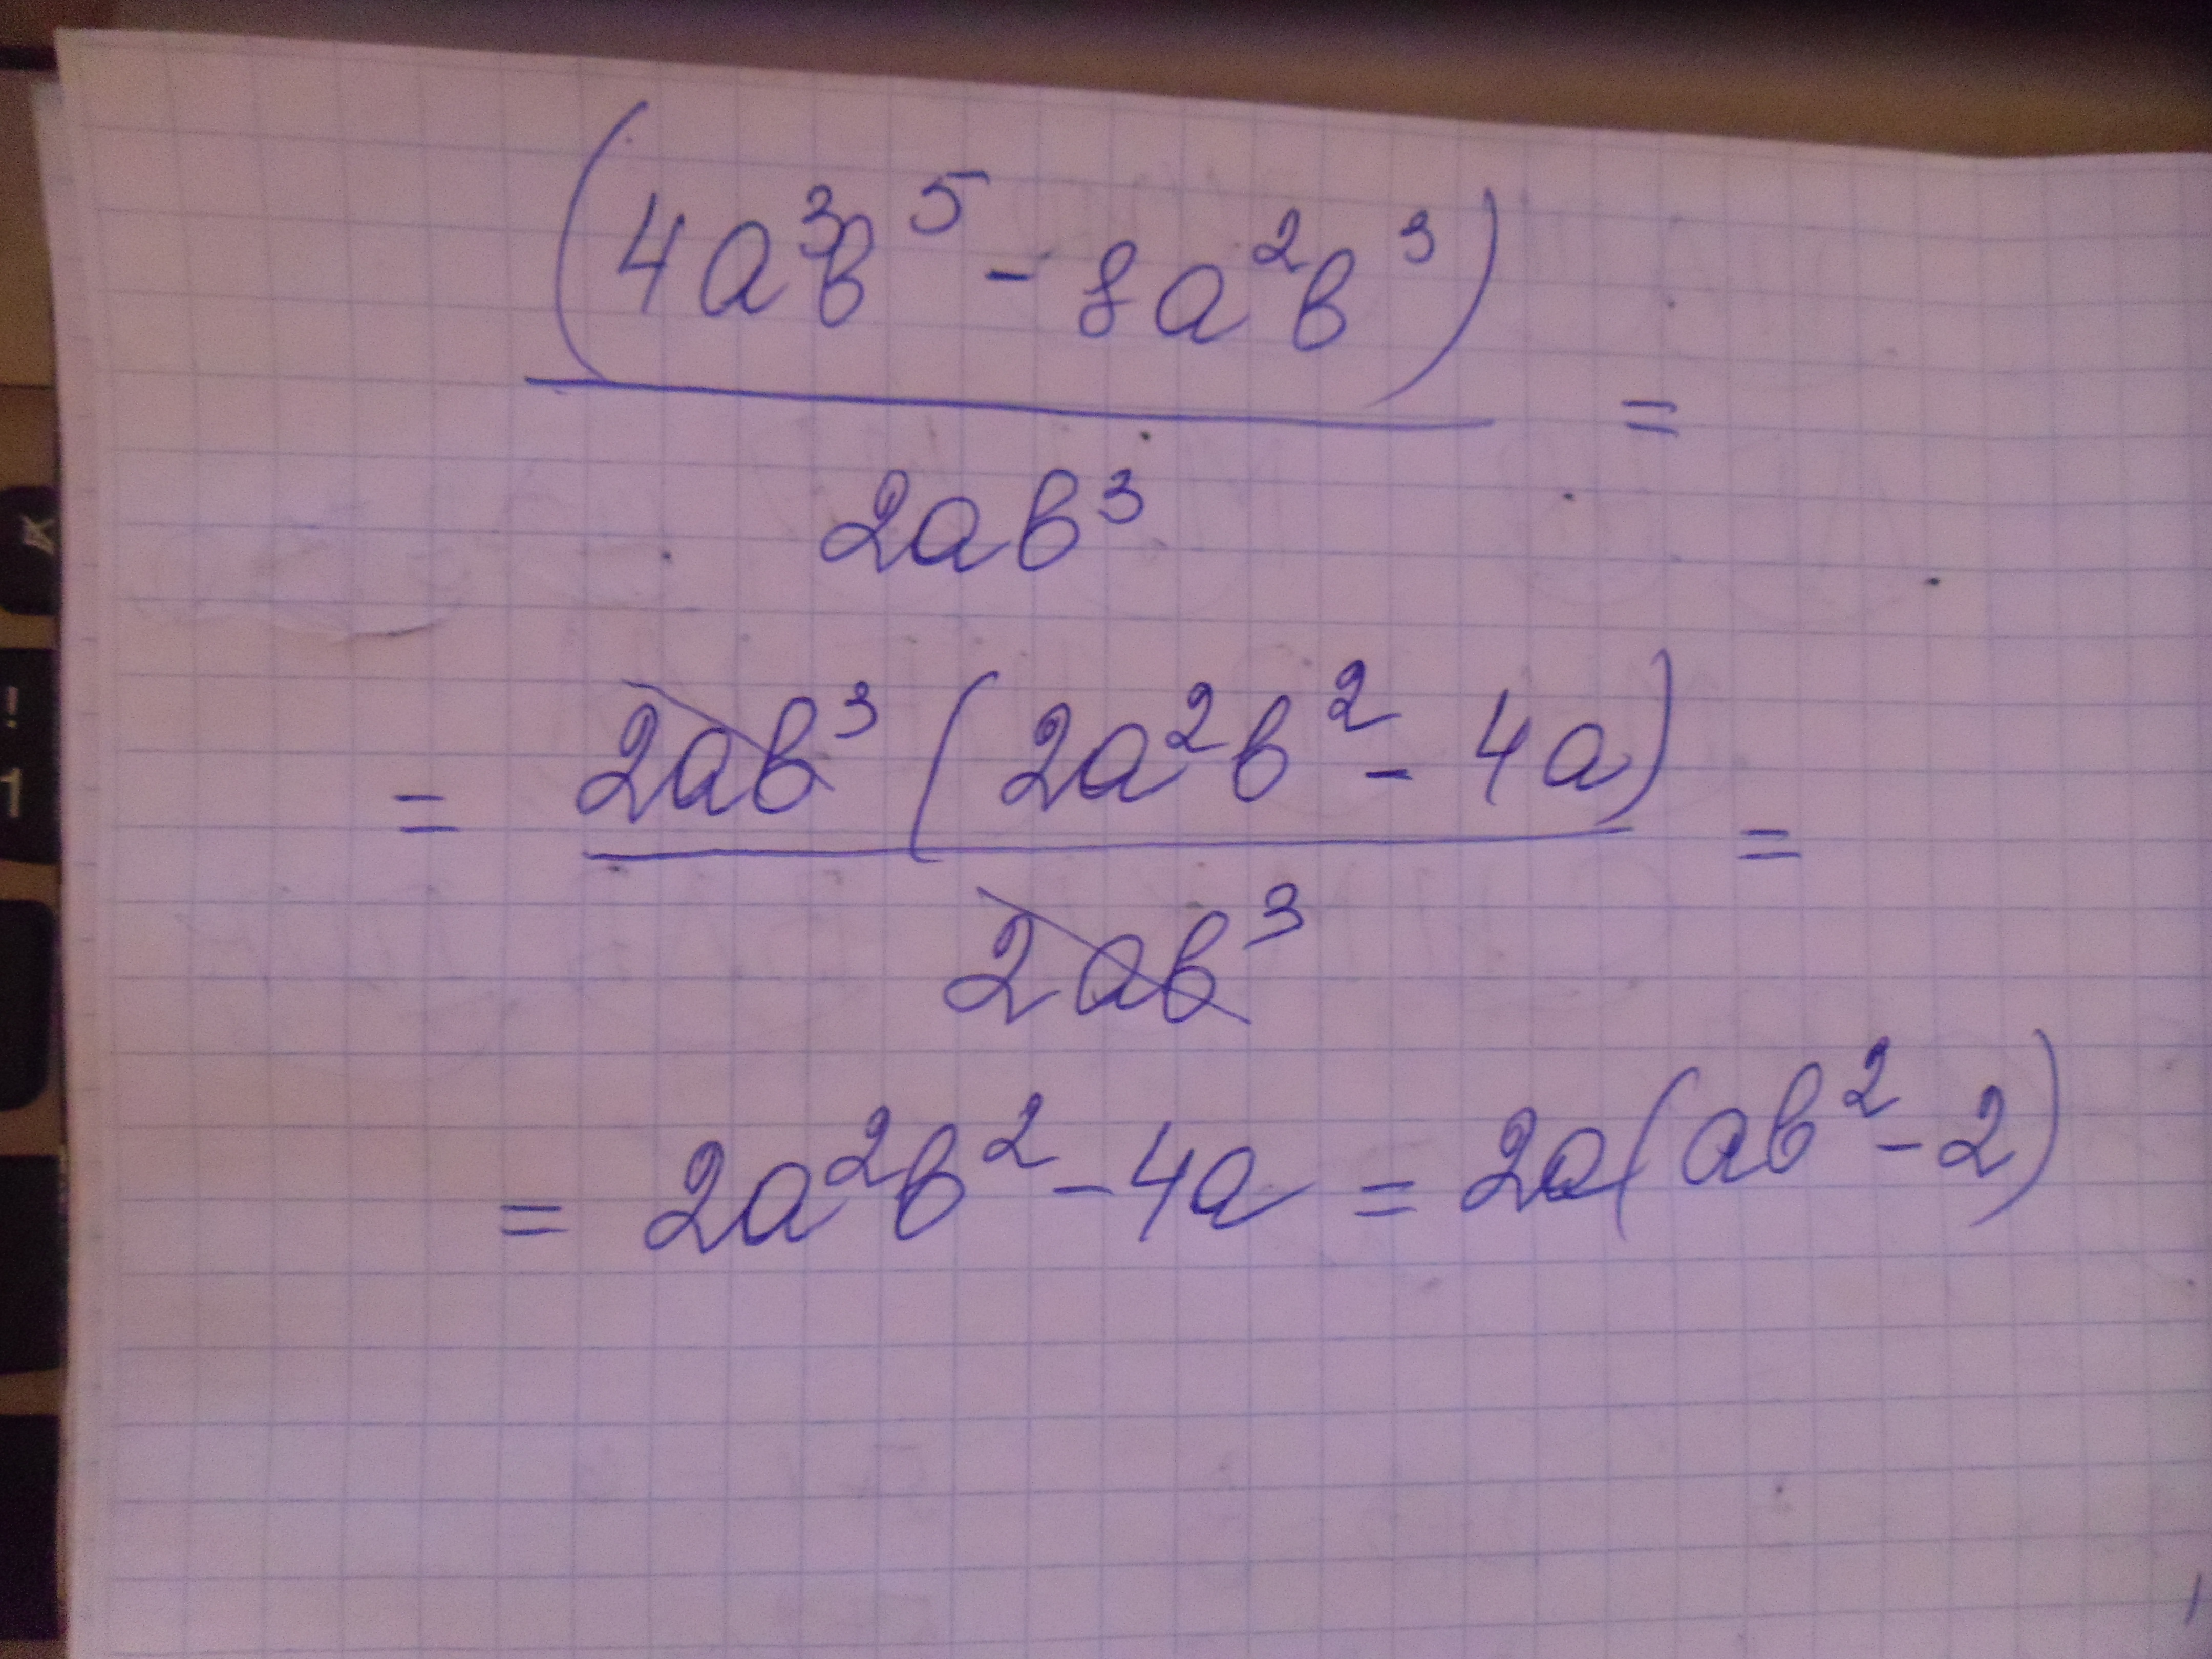 (4a³b⁵ - 8a²b³)
=
2ab³
2ab³ (2a²b² - 4a)
= =
2ab³
= 2a²b² - 4a = 2a(ab² - 2)
!
1